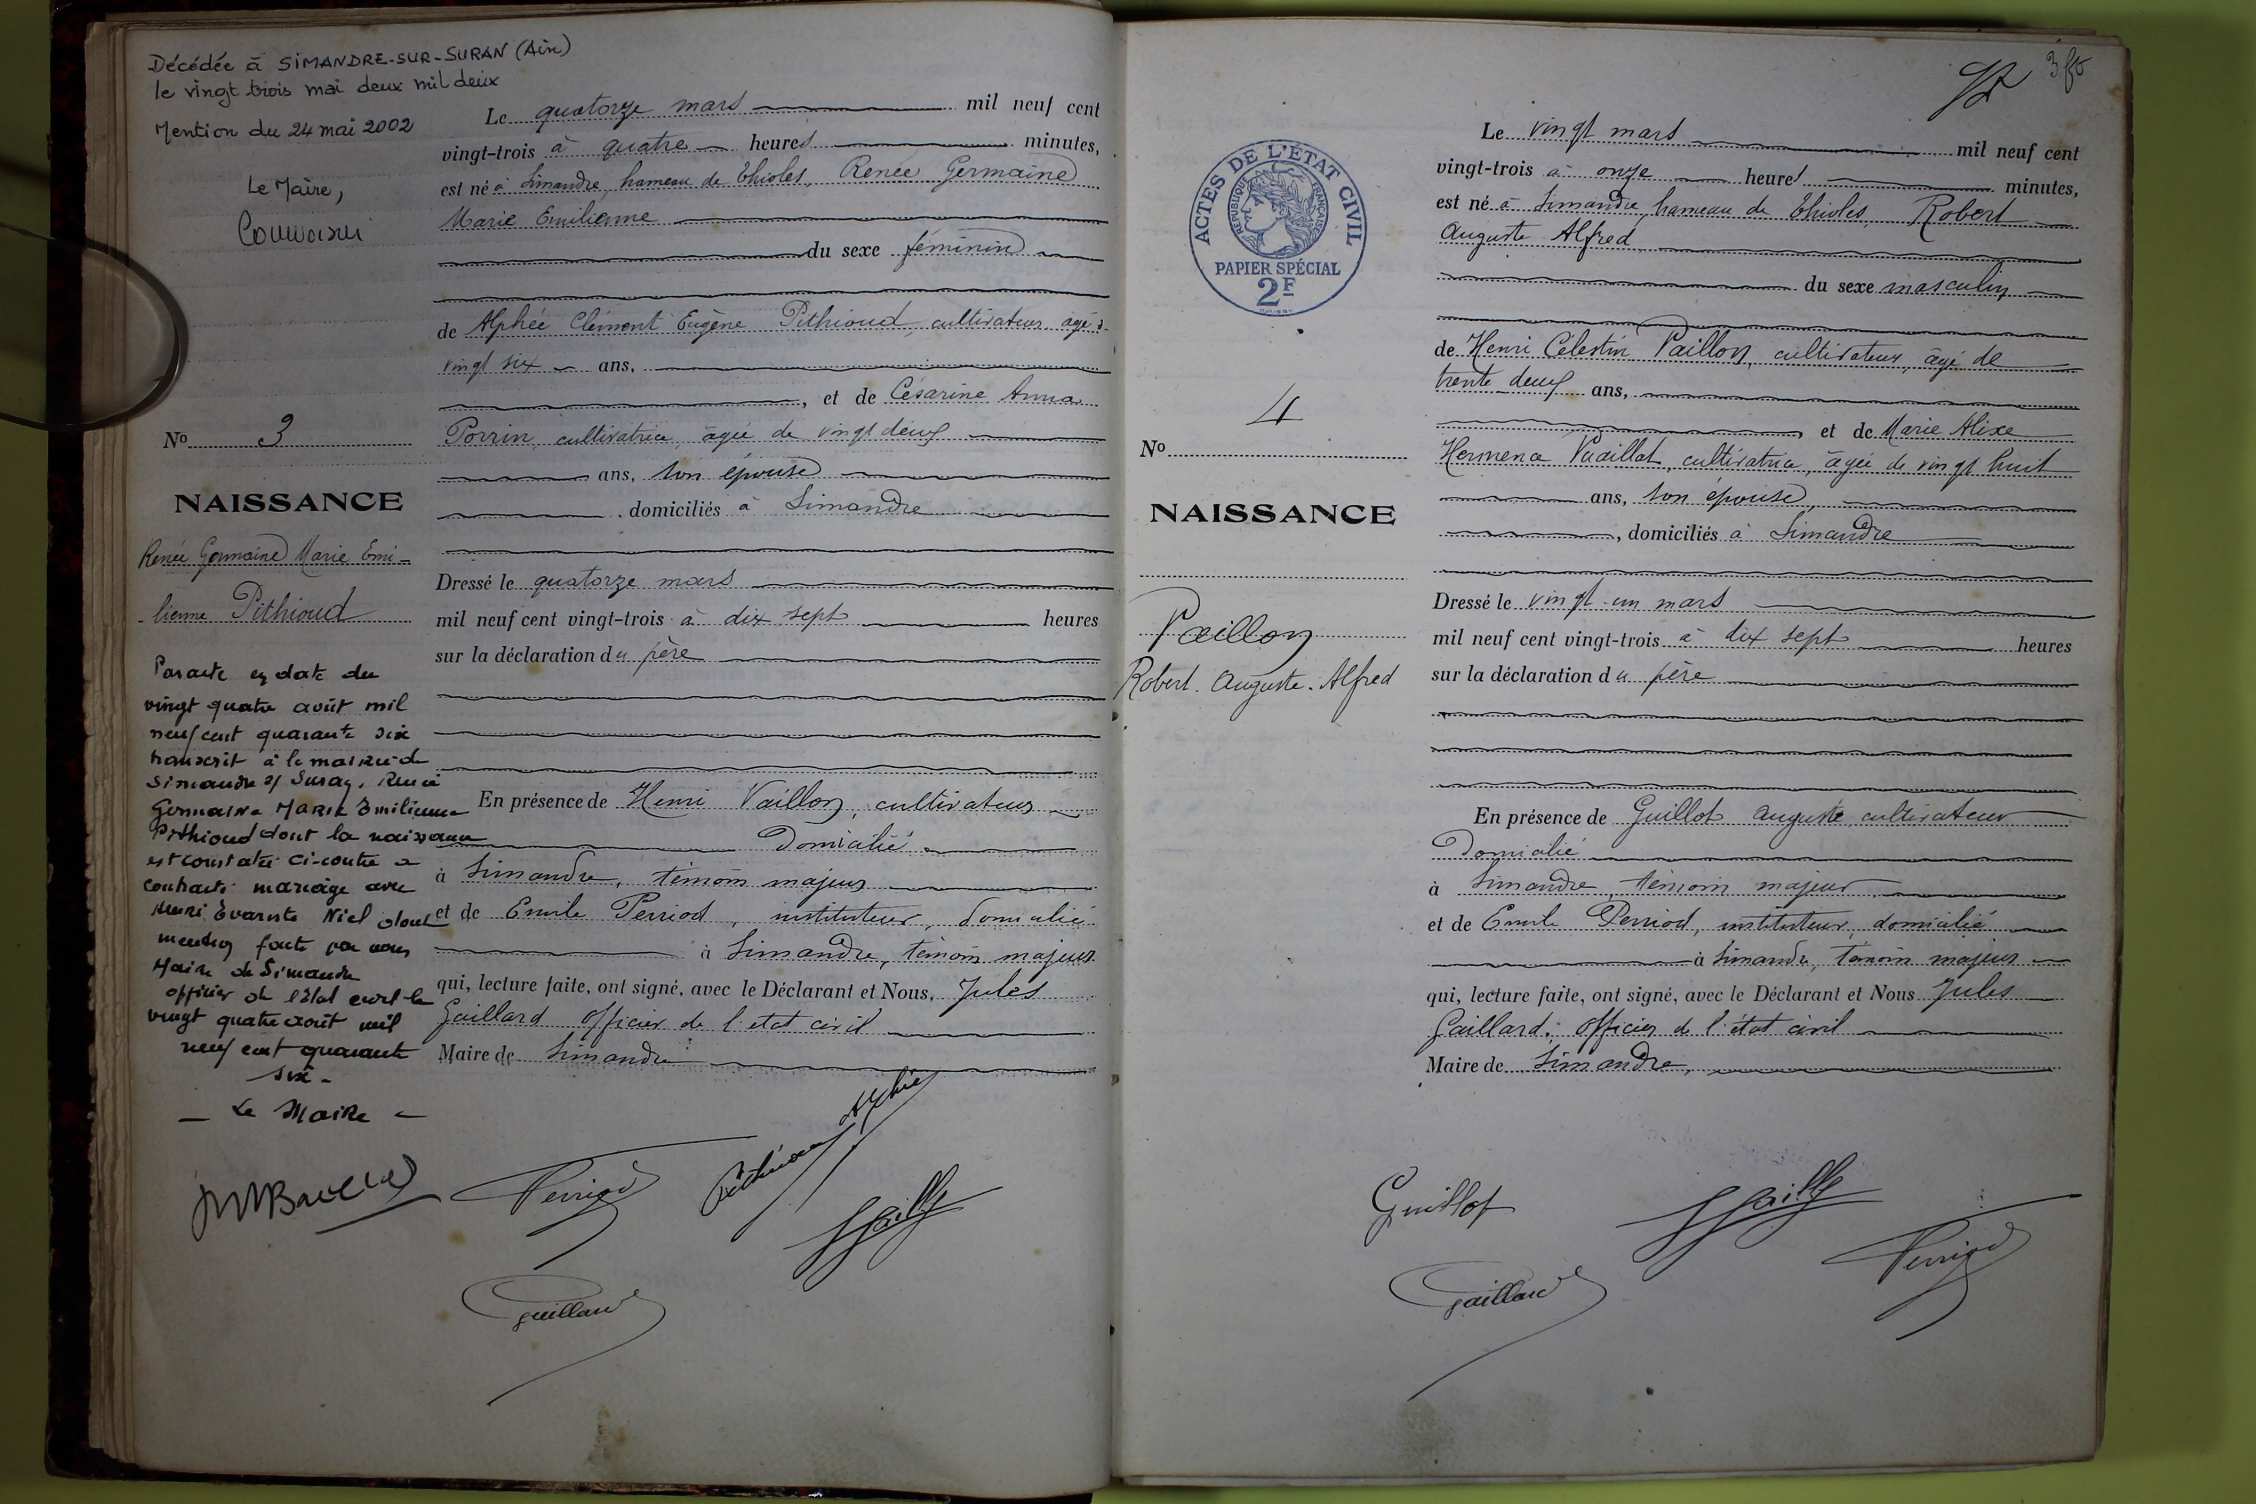 Décédée à SIMANDRE-SUR-SURAN (Ain)
le vingt trois mai deux mil deux
Mention du 24 mai 2002
Le Maire,
Le quatorze mars mil neuf cent
vingt-trois à quatre heures minutes,
est né à Simandre, hameau de Thioles, Renée Germaine
Marie Emilienne
du sexe féminin
de Alphée Clément Eugène Pithioud, cultivateur, âgé de
vingt six ans,
, et de Césarine Anna
Porrin, cultivatrice, âgée de vingt deux
ans, son épouse
, domiciliés à Simandre
Dressé le quatorze mars
mil neuf cent vingt-trois à dix sept heures
sur la déclaration du père
En présence de Henri Vaillon, cultivateur
Domicilié
à Simandre, témoin majeur
et de Emile Perriod, instituteur, domicilié
à Simandre, témoin majeur
qui, lecture faite, ont signé, avec le Déclarant et Nous, Jules
Gaillard officier de l'état civil
Maire de Simandre
No 3
NAISSANCE
Renée Germaine Marie Emi-
-lienne Pithioud
Par acte en date du
vingt quatre août mil
neuf cent quarante six
transcrit à la mairie de
Simandre s/ Suran, Renée
Germaine Marie Emilienne
Pithioud dont la naissance
est constatée ci-contre a
contracté mariage avec
Henri Evariste Niel dont
mention faite par nous
Maire de Simandre
officier de l'Etat civil le
vingt quatre août mil
neuf cent quarante
six -
- Le Maire -
Perriod
Pithioud Alphée
Gaillard
3 fo
ACTES DE L'ÉTAT CIVIL
RÉPUBLIQUE FRANÇAISE
PAPIER SPÉCIAL
2F
No 4
NAISSANCE
Vaillon
Robert. Auguste. Alfred
Le vingt mars mil neuf cent
vingt-trois à onze heures minutes,
est né à Simandre, hameau de Thioles, Robert
Auguste Alfred
du sexe masculin
de Henri Célestin Vaillon, cultivateur, âgé de
trente deux ans,
, et de Marie Alixe
Hermena Vuaillat, cultivatrice, âgée de vingt huit
ans, son épouse,
, domiciliés à Simandre
Dressé le vingt-un mars
mil neuf cent vingt-trois à dix sept heures
sur la déclaration du père
En présence de Guillot Auguste, cultivateur
Domicilié
à Simandre, témoin majeur
et de Emile Perriod, instituteur, domicilié
à Simandre, témoin majeur
qui, lecture faite, ont signé, avec le Déclarant et Nous Jules
Gaillard, officier de l'état civil
Maire de Simandre,
Guillot
Gaillard
Perriod